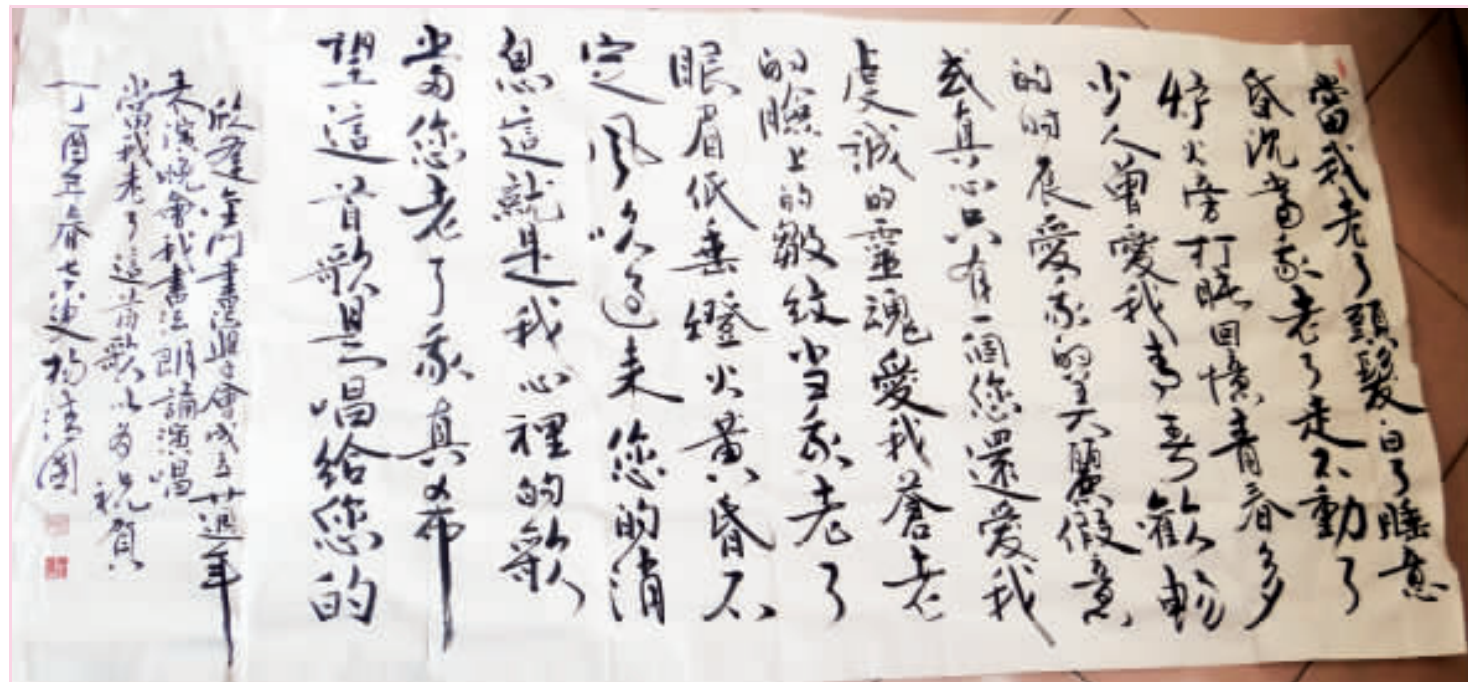 當我老了頭髮白了睡意
昏沉當我老了走不動了
爐火旁打盹回憶青春多
少人曾愛我青春歡暢
的時辰愛我的美麗假意
或真心只有一個您還愛我
虔誠的靈魂愛我蒼老
的臉上的皺紋當我老了
眼眉低垂燈火黃昏不
定風吹過來您的消
息這就是我心裡的歌
當您老了我真的希
望這首歌是唱給您的
欣逢金門書法學會成立廿週年
來演晚會我書法朗誦演唱
當我老了這首歌以為祝賀
丁酉年春七十叟楊清國